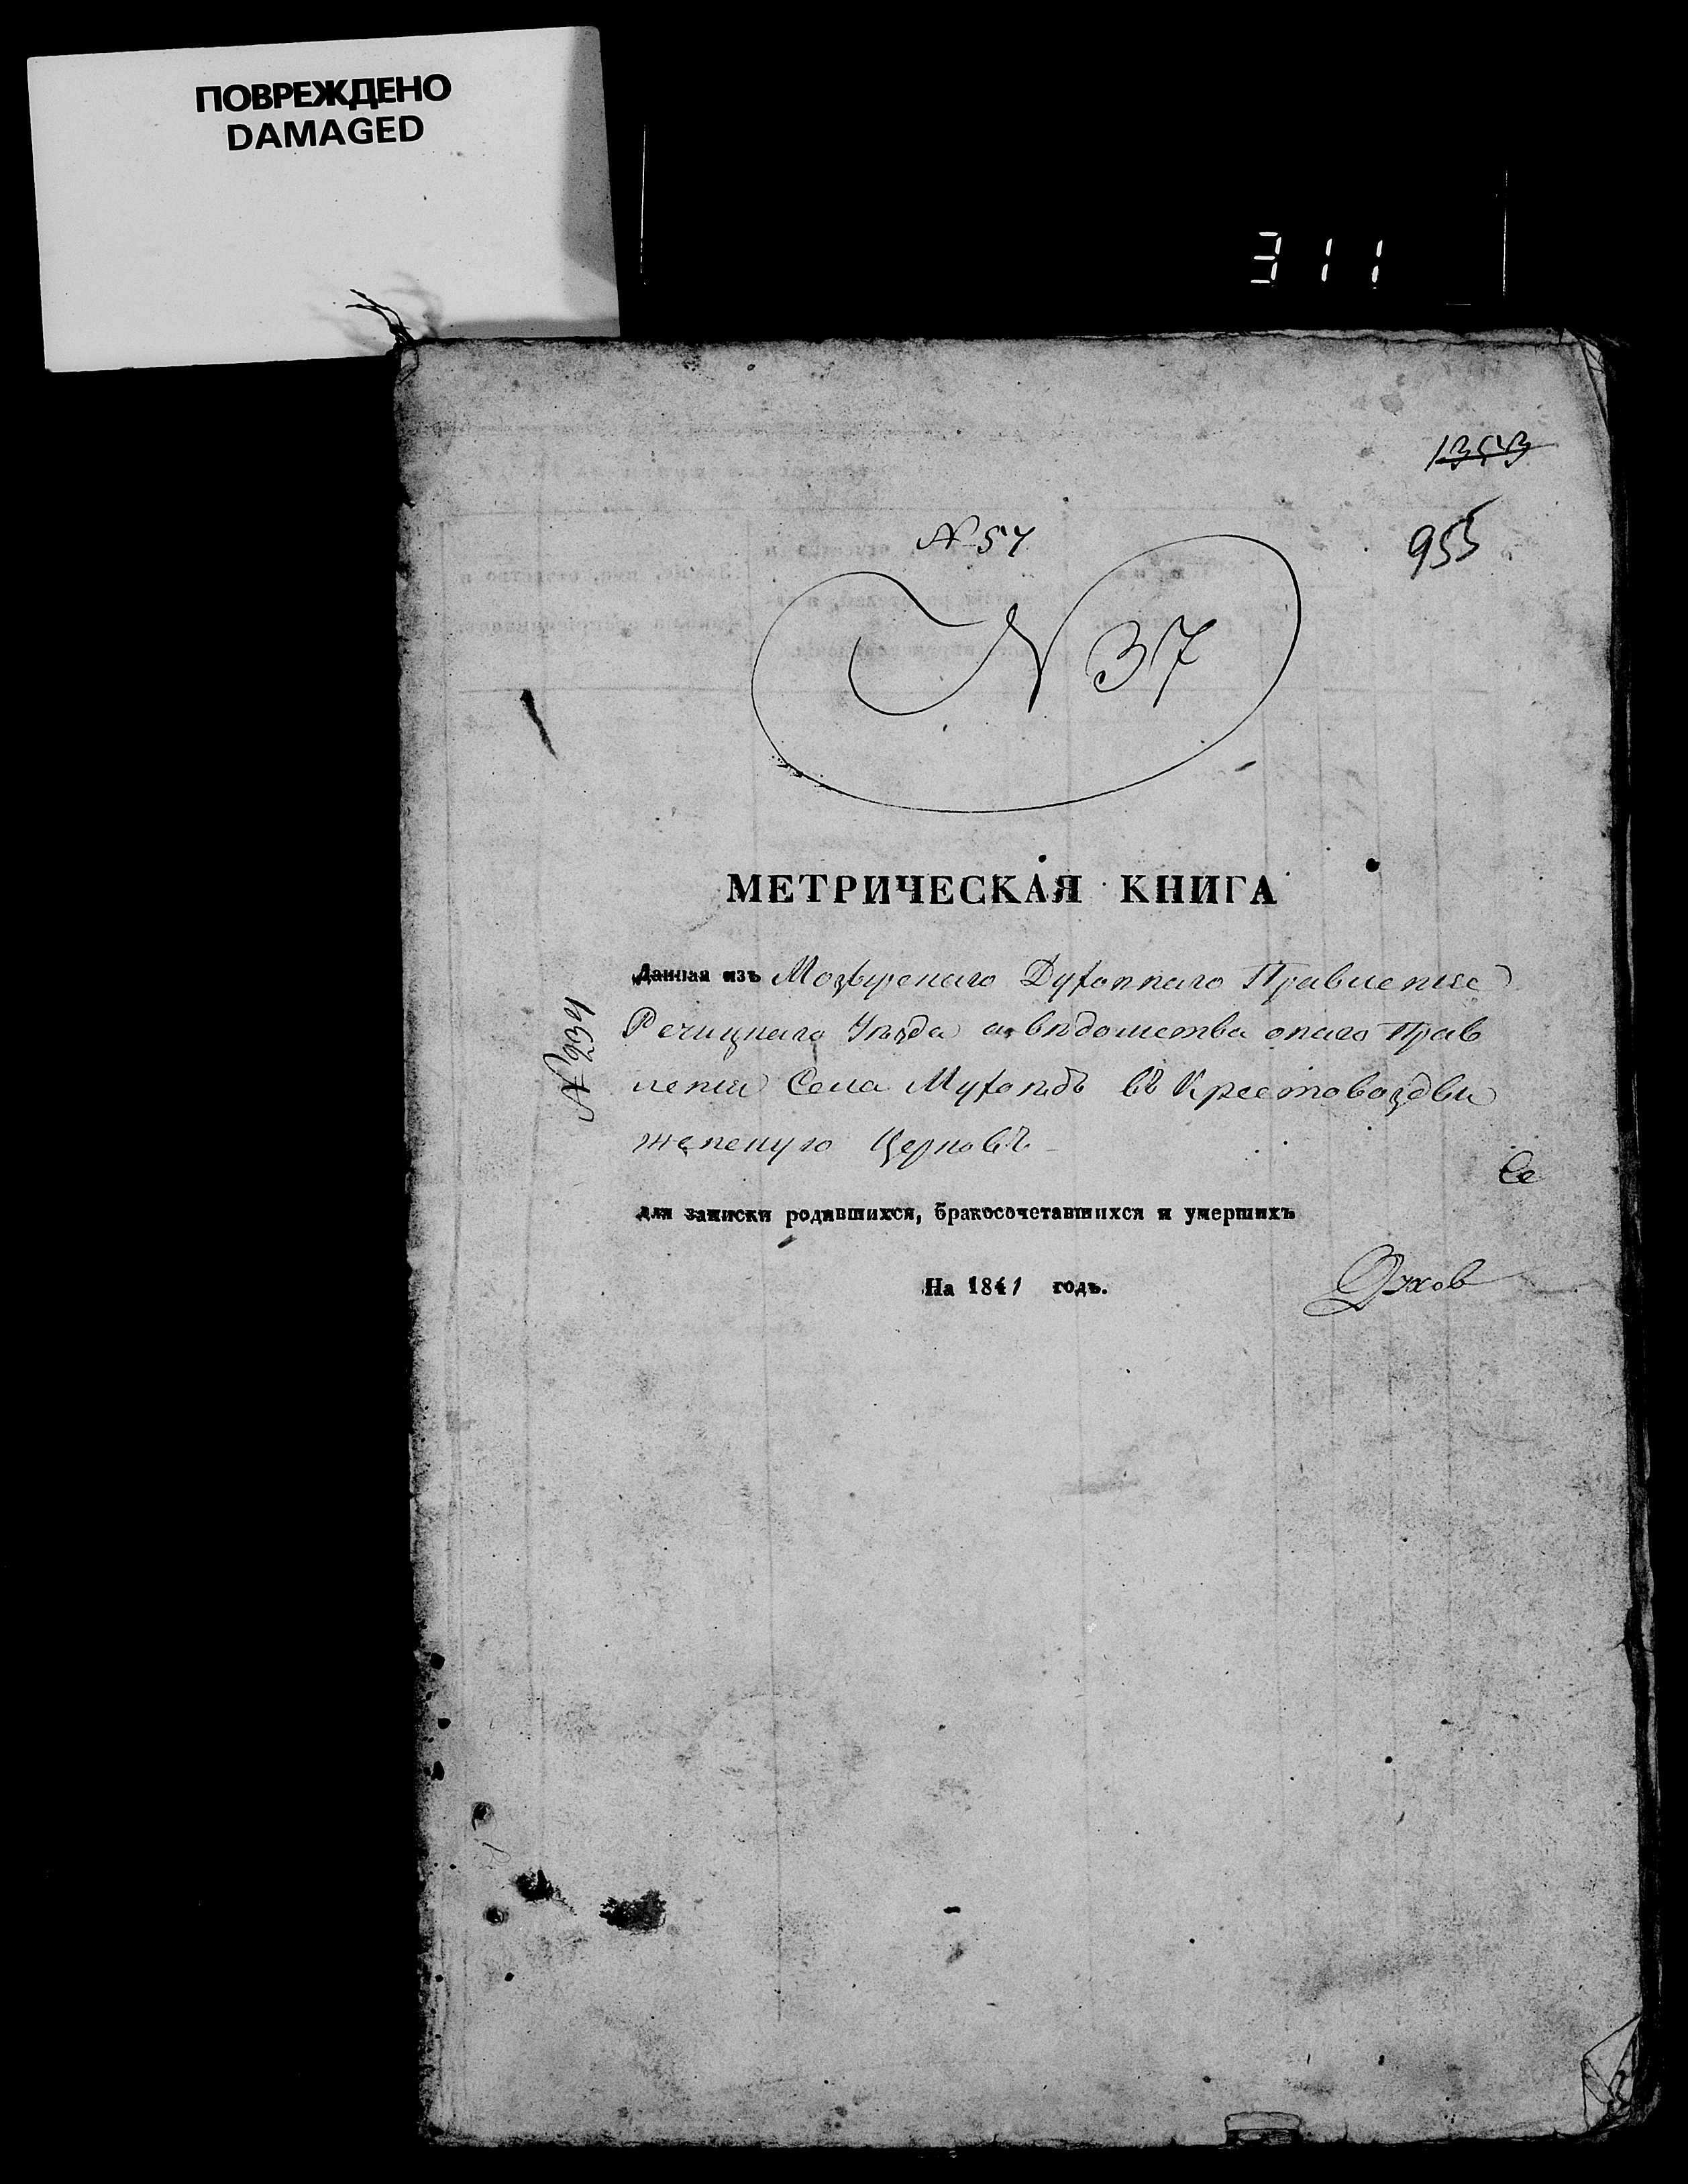 ПОВРЕЖДЕНО
DAMAGED
311
1353
955
№ 57
№ 37
МЕТРИЧЕСКАЯ КНИГА
Данная изъ Мозырскаго Духовнаго Правленія
Речицкаго Уѣзда вѣдомства онаго Прав
ленія Села въ Крестовоздви
женскую Церковь
№ 234
Се
для записки родившихся, бракосочетавшихся и умершихъ
На 1841 годъ.
Духов